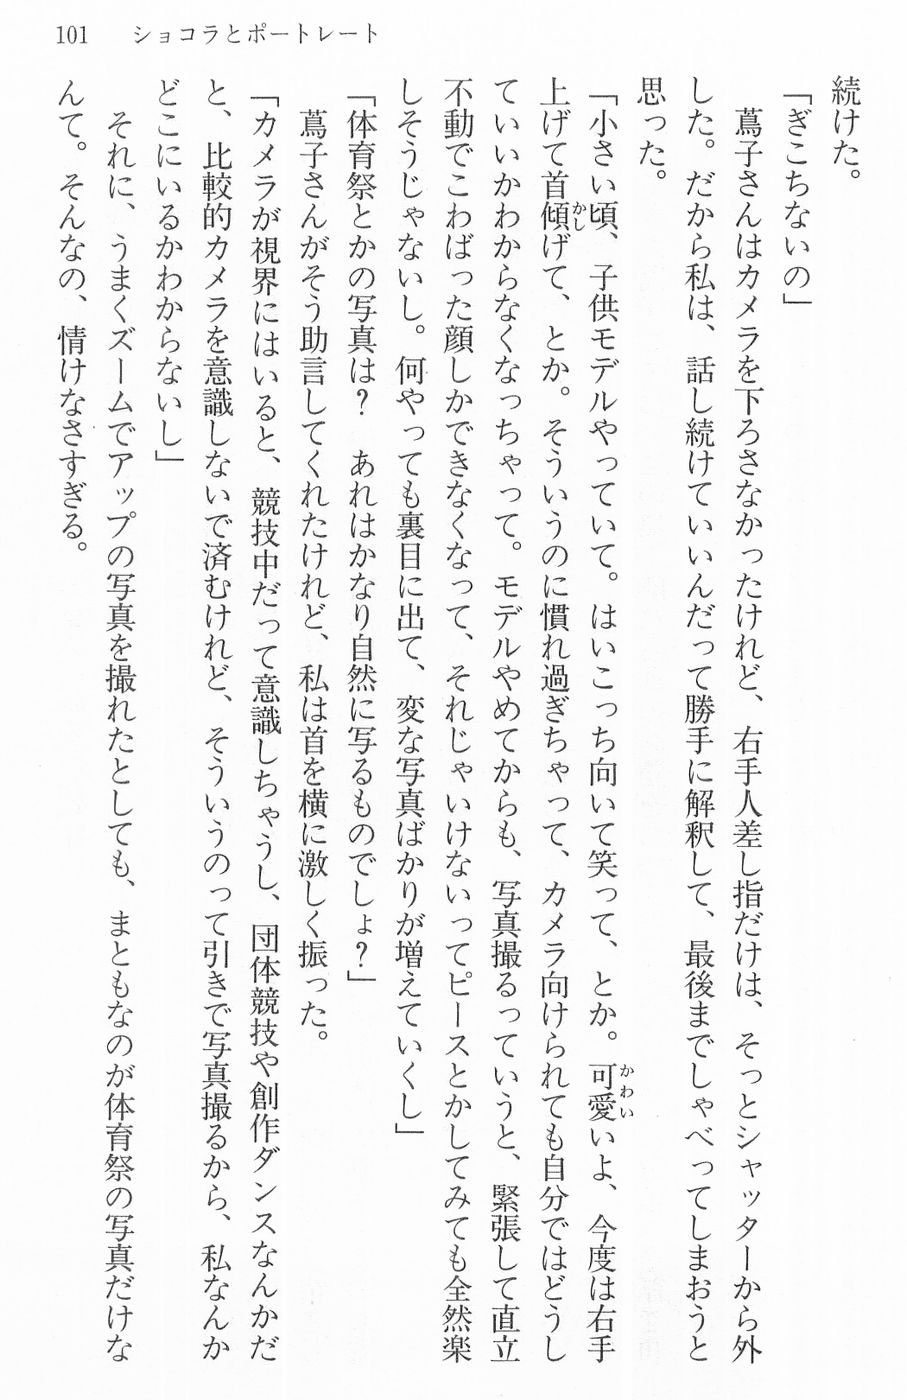 101　ショコラとポートレート
続けた。
「ぎこちないの」
　蔦子さんはカメラを下ろさなかったけれど、右手人差し指だけは、そっとシャッターから外
した。だから私は、話し続けていいんだって勝手に解釈して、最後までしゃべってしまおうと
思った。
「小さい頃、子供モデルやっていて。はいこっち向いて笑って、とか。可愛いよ、今度は右手
上げて首傾げて、とか。そういうのに慣れ過ぎちゃって、カメラ向けられても自分ではどうし
ていいかわからなくなっちゃって。モデルやめてからも、写真撮るっていうと、緊張して直立
不動でこわばった顔しかできなくなって、それじゃいけないってピースとかしてみても全然楽
しそうじゃないし。何やっても裏目に出て、変な写真ばかりが増えていくし」
「体育祭とかの写真は？　あれはかなり自然に写るものでしょ？」
　蔦子さんがそう助言してくれたけれど、私は首を横に激しく振った。
「カメラが視界にはいると、競技中だって意識しちゃうし、団体競技や創作ダンスなんかだ
と、比較的カメラを意識しないで済むけれど、そういうのって引きで写真撮るから、私なんか
どこにいるかわからないし」
　それに、うまくズームでアップの写真を撮れたとしても、まともなのが体育祭の写真だけな
んて。そんなの、情けなさすぎる。